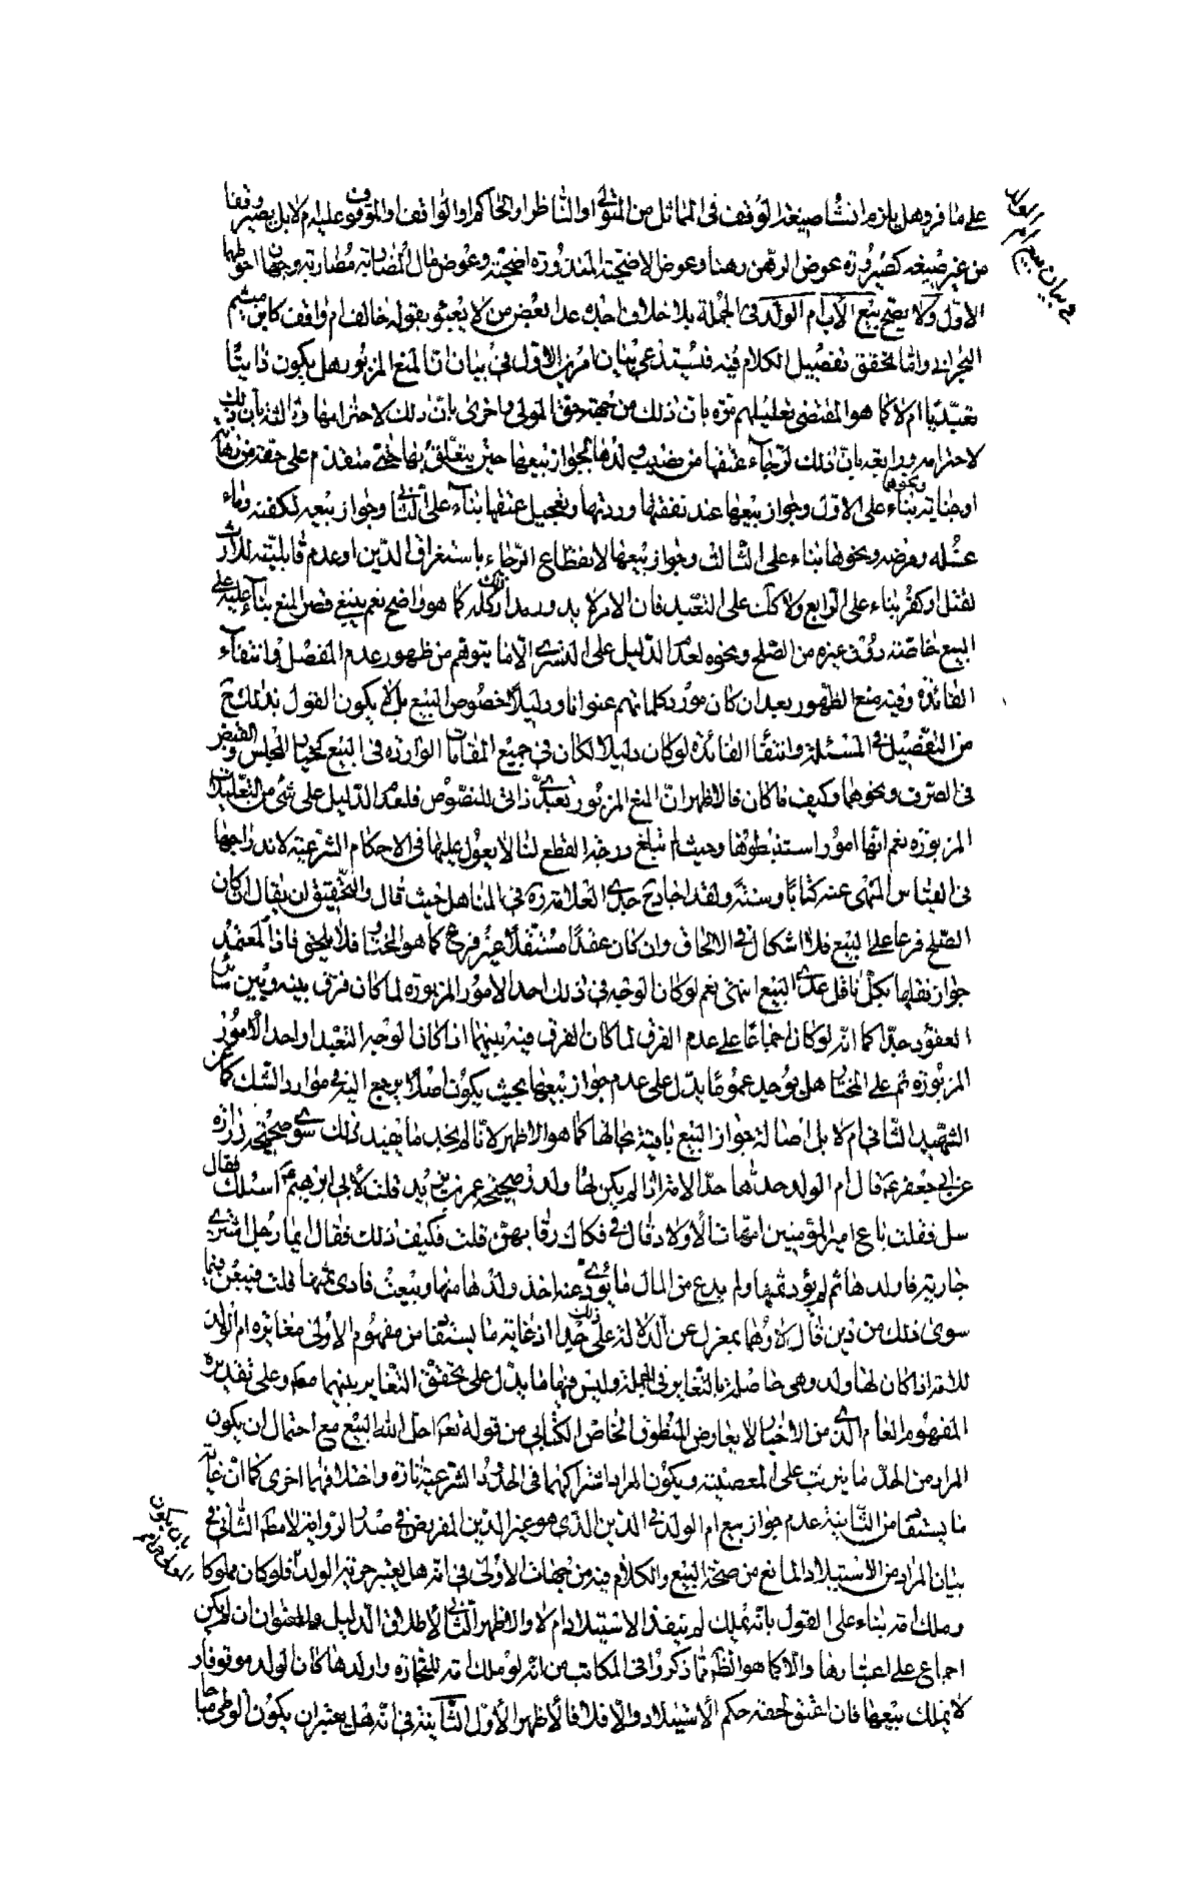 على ما فر وهل يلزم انشاء صيغة الوقف في المماثل من المتولي او الناظر او الحاكم او الواقف او الموقوف عليه ام لا بل يصير وقفا
من غير صيغه كصيرورة عوض الرهن رهنا وعوض الاضحية المنذورة اضحية وعوض مال المضاربة مضاربة وجهان احوطهما
الاول ولا يصح بيع الامام الولد في الجملة بلا خلاف اجده عدا بعض من لا يعبؤ بقوله خالف ام وافق كابن ميثم
البحراني وانما تحقق تفصيل الكلام فيه فيستدعي بيان امرين الاول في بيان ان المنع المزبور هل يكون ذاتيا
تعبديا ام لا كما هو المقتضى تعليلهم مرة بان ذلك من جهة حق المولى واخرى بان ذلك لاحترامها وثالثة بان ذلك
لاحترامه ورابعة بان ذلك لرجاء عتقها من نصيب ولدها فيجوز بيعها حين يتعلق بها حق متقدم على حقه من رهانة
او جناية بناء على الاول وجواز بيعها عند نفقتها وردتها وتعجيل عتقها بناء على الثاني وجواز بيعه لكفنه وماء
غسله ومرضه ونحوها بناء على الثالث وجواز بيعها لانقطاع الرجاء باستغراق الدين او عدم قابليته للارث
لقتل او كفر بناء على الرابع ولا كذلك على التعبد فان الامر لا يدور مدار ذلك كله كما هو واضح نعم ينبغي قصر المنع بناء عليه على
البيع خاصة دون غيره من الصلح ونحوه لعدم الدليل على التسري الا ما يتوهم من ظهور عدم المفصل وانتفاء
الفائدة وفيه منع الظهور بعد ان كان مورد كلماتهم عنوانا ودليلا خصوص البيع بل لا يكون القول بذلك ح
من التفصيل في المسئلة وانتفاء الفائدة لو كان دليلا لكان في جميع المقامات الواردة في البيع كخيار المجلس والقبض
في الصرف ونحوهما وكيف ما كان فالاظهر ان المنع المزبور تعبدي ذاتي للنصوص فلعدم الدليل على شئ من التعليلات
المزبورة نعم انها امور استنبطوها وحيث لم تبلغ درجة القطع لنا لا يعول عليها في الاحكام الشرعية لاندراجها
في القياس المنهى عنه كتابا وسنة ولقد اجاد جدي العلامة ره في المناهل حيث قال والتحقيق ان يقال ان كان
الصلح فرعا على البيع فلا اشكال في الالحاق وان كان عقدا مستقلا غير فرع كما هو المختار فلا يلحق فاذا المعتمد
جواز نقلها بكل ناقل عدى البيع انتهى نعم لو كان الوجه في ذلك احد الامور المزبورة لما كان فرق بينه وبين سائر
العقود جدا كما انه لو كان اجماعا على عدم الفرق لما كان الفرق فيه بينهما اذا كان الوجه التعبد او احد الامور
المزبورة ثم على المختار هل يوجد عموما يدل على عدم جواز بيعها بحيث يكون اصلا يرجع اليه في موارد الشك كما عن
الشهيد الثاني ام لا بل اصالة جواز البيع باقية بحالها كما هو الاظهر لانا لم نجد ما يفيد ذلك سوى صحيحة زرارة
عن ابي جعفر ع قال ام الولد حدها حد الامة اذا لم يكن لها ولد وصحيحة عمر بن يزيد قلت لابي ابراهيم ع اسئلك فقال
سل فقلت باع امير المؤمنين امهات الاولاد قال في فكاك رقابهن قلت فكيف ذلك فقال ايما رجل اشترى
جارية فاولدها ثم لم يؤد ثمنها ولم يدع من المال ما يؤدي عنه اخذ ولدها منها وبيعت فادى ثمنها قلت فيبعن فيما
سوى ذلك من دين قال لا وهما بمعزل عن الدلالة على ذلك جدا اذ غاية ما يستفاد من مفهوم الاولى مغايرة ام الولد
للامة اذا كان لها ولد وهي حاصلة بالتغاير في الجملة وليس فيها ما يدل على تحقق التغاير بينهما معه وعلى تقديره
المفهوم العام الذي من الاخبار لا يعارض المنطوق الخاص الكتابي من قوله تعم احل الله البيع مع احتمال ان يكون
المراد من الحد ما يترتب على المعصية ويكون المراد اشتراكهما في الحدود الشرعية تارة واختلافهما اخرى كما ان غاية
ما يستفاد من الثانية عدم جواز بيع ام الولد في الدين الذي هو غير الدين المفروض في صدر الرواية لا مطلقا الثاني في
بيان المراد من الاستيلاد المانع من صحة البيع والكلام فيه من جهات الاولى في انه هل يعتبر حرية الولد فلو كان مملوكا
وملك امة بناء على القول بانه يملك لم ينفذ الاستيلاد ام لا والاظهر الثاني لاطلاق الدليل والعنوان ان لم يكن
اجماع على اعتبارها والا كما هو الظاهر مما ذكروا في المكاتب من انه لو ملك امة للتجارة واولدها كان الولد موقوفا ور
لا يملك بيعها فان اعتق لحقته حكم الاستيلاد والا فلا فالاظهر الاول الثانية في انه هل يعتبر ان يكون الوطى مباحا